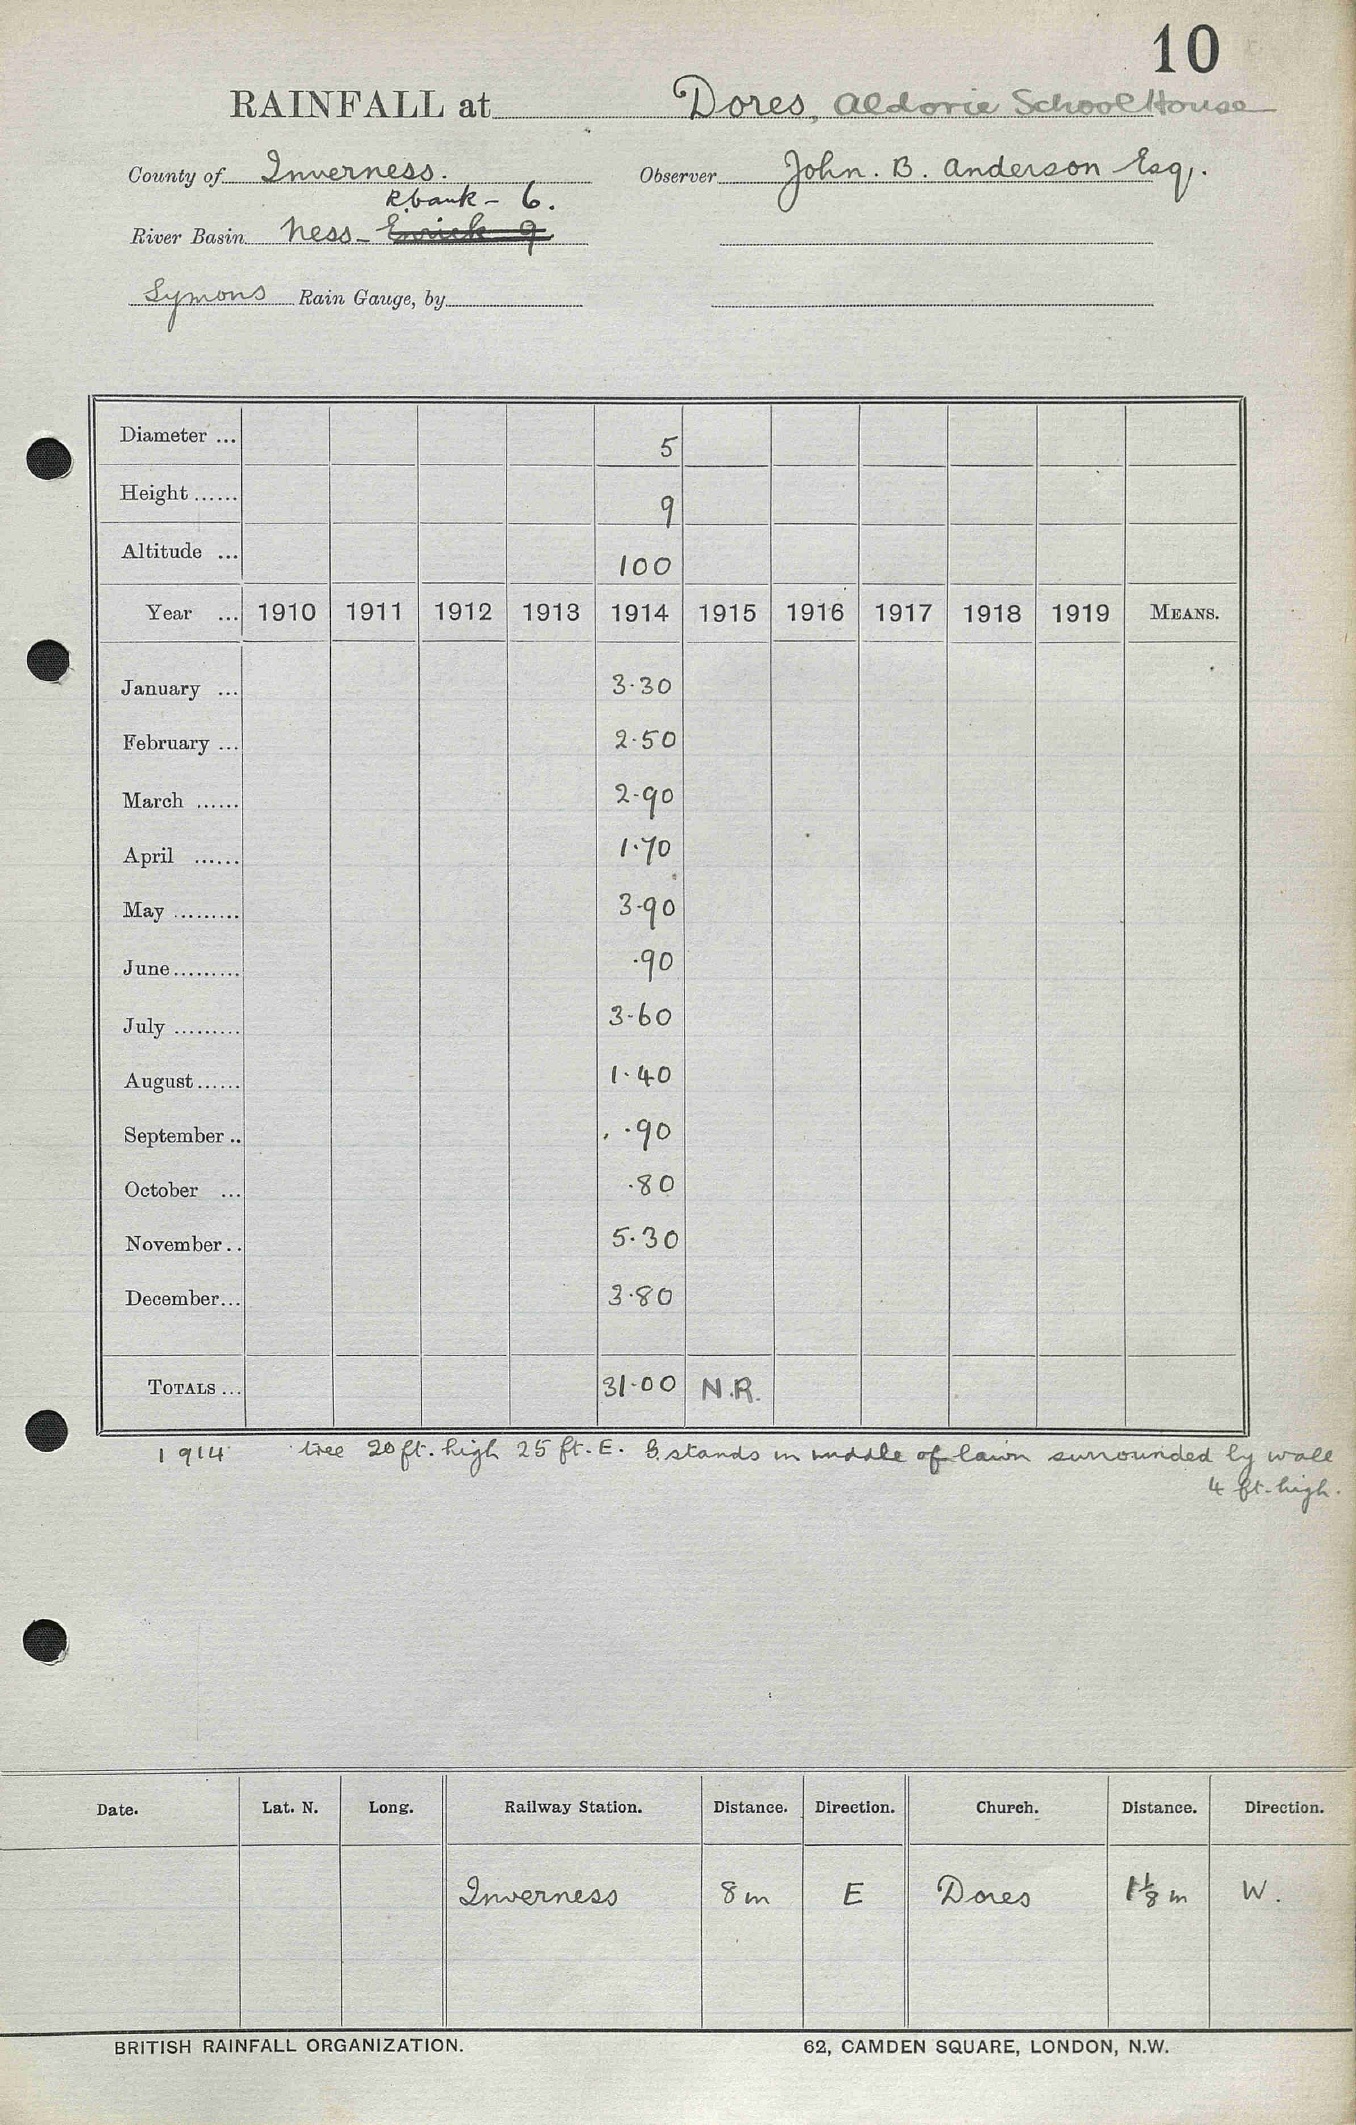 10
RAINFALL at Dores, Aldorie School House
County of Inverness. Observer John. B. Anderson Esq.
R. bank - 6.
River Basin Ness - Enrick 9
Symons Rain Gauge, by
Diameter ... 5
Height ...... 9
Altitude ... 100
Year ... 1910 1911 1912 1913 1914 1915 1916 1917 1918 1919 MEANS.
January ... 3.30
February ... 2.50
March ...... 2.90
April ...... 1.70
May ......... 3.90
June ......... .90
July ......... 3.60
August ...... 1.40
September .. .90
October ... .80
November .. 5.30
December ... 3.80
TOTALS ... 31.00 N.R.
1914 tree 20 ft. high 25 ft. E. G. stands in middle of lawn surrounded by wall
4 ft. high.
Date. Lat. N. Long. Railway Station. Distance. Direction. Church. Distance. Direction.
Inverness 8 m E Dores 1 1/8 m W.
BRITISH RAINFALL ORGANIZATION. 62, CAMDEN SQUARE, LONDON, N.W.